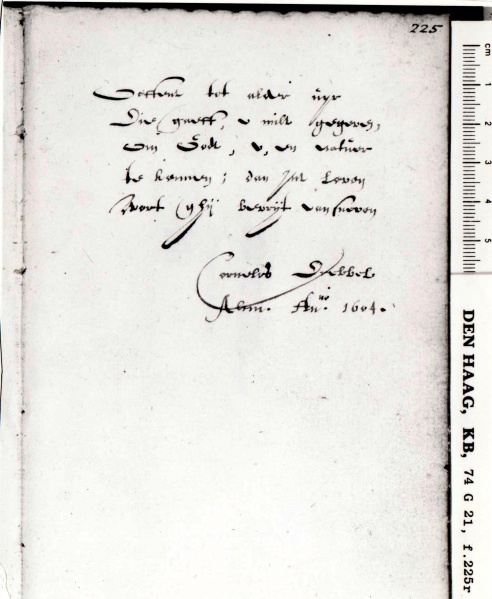 225
Oeffent tot alder uyr
Die gaeff, u milt gegeven,
Om Godt, u, en natuer
te kennen; dan int Leven
Wort ghij bevrijt van sneven
Cornelis Drebbel
Alcm. Anno. 1604.
cm
1
2
3
4
5
DEN HAAG, KB, 74 G 21, f.225r